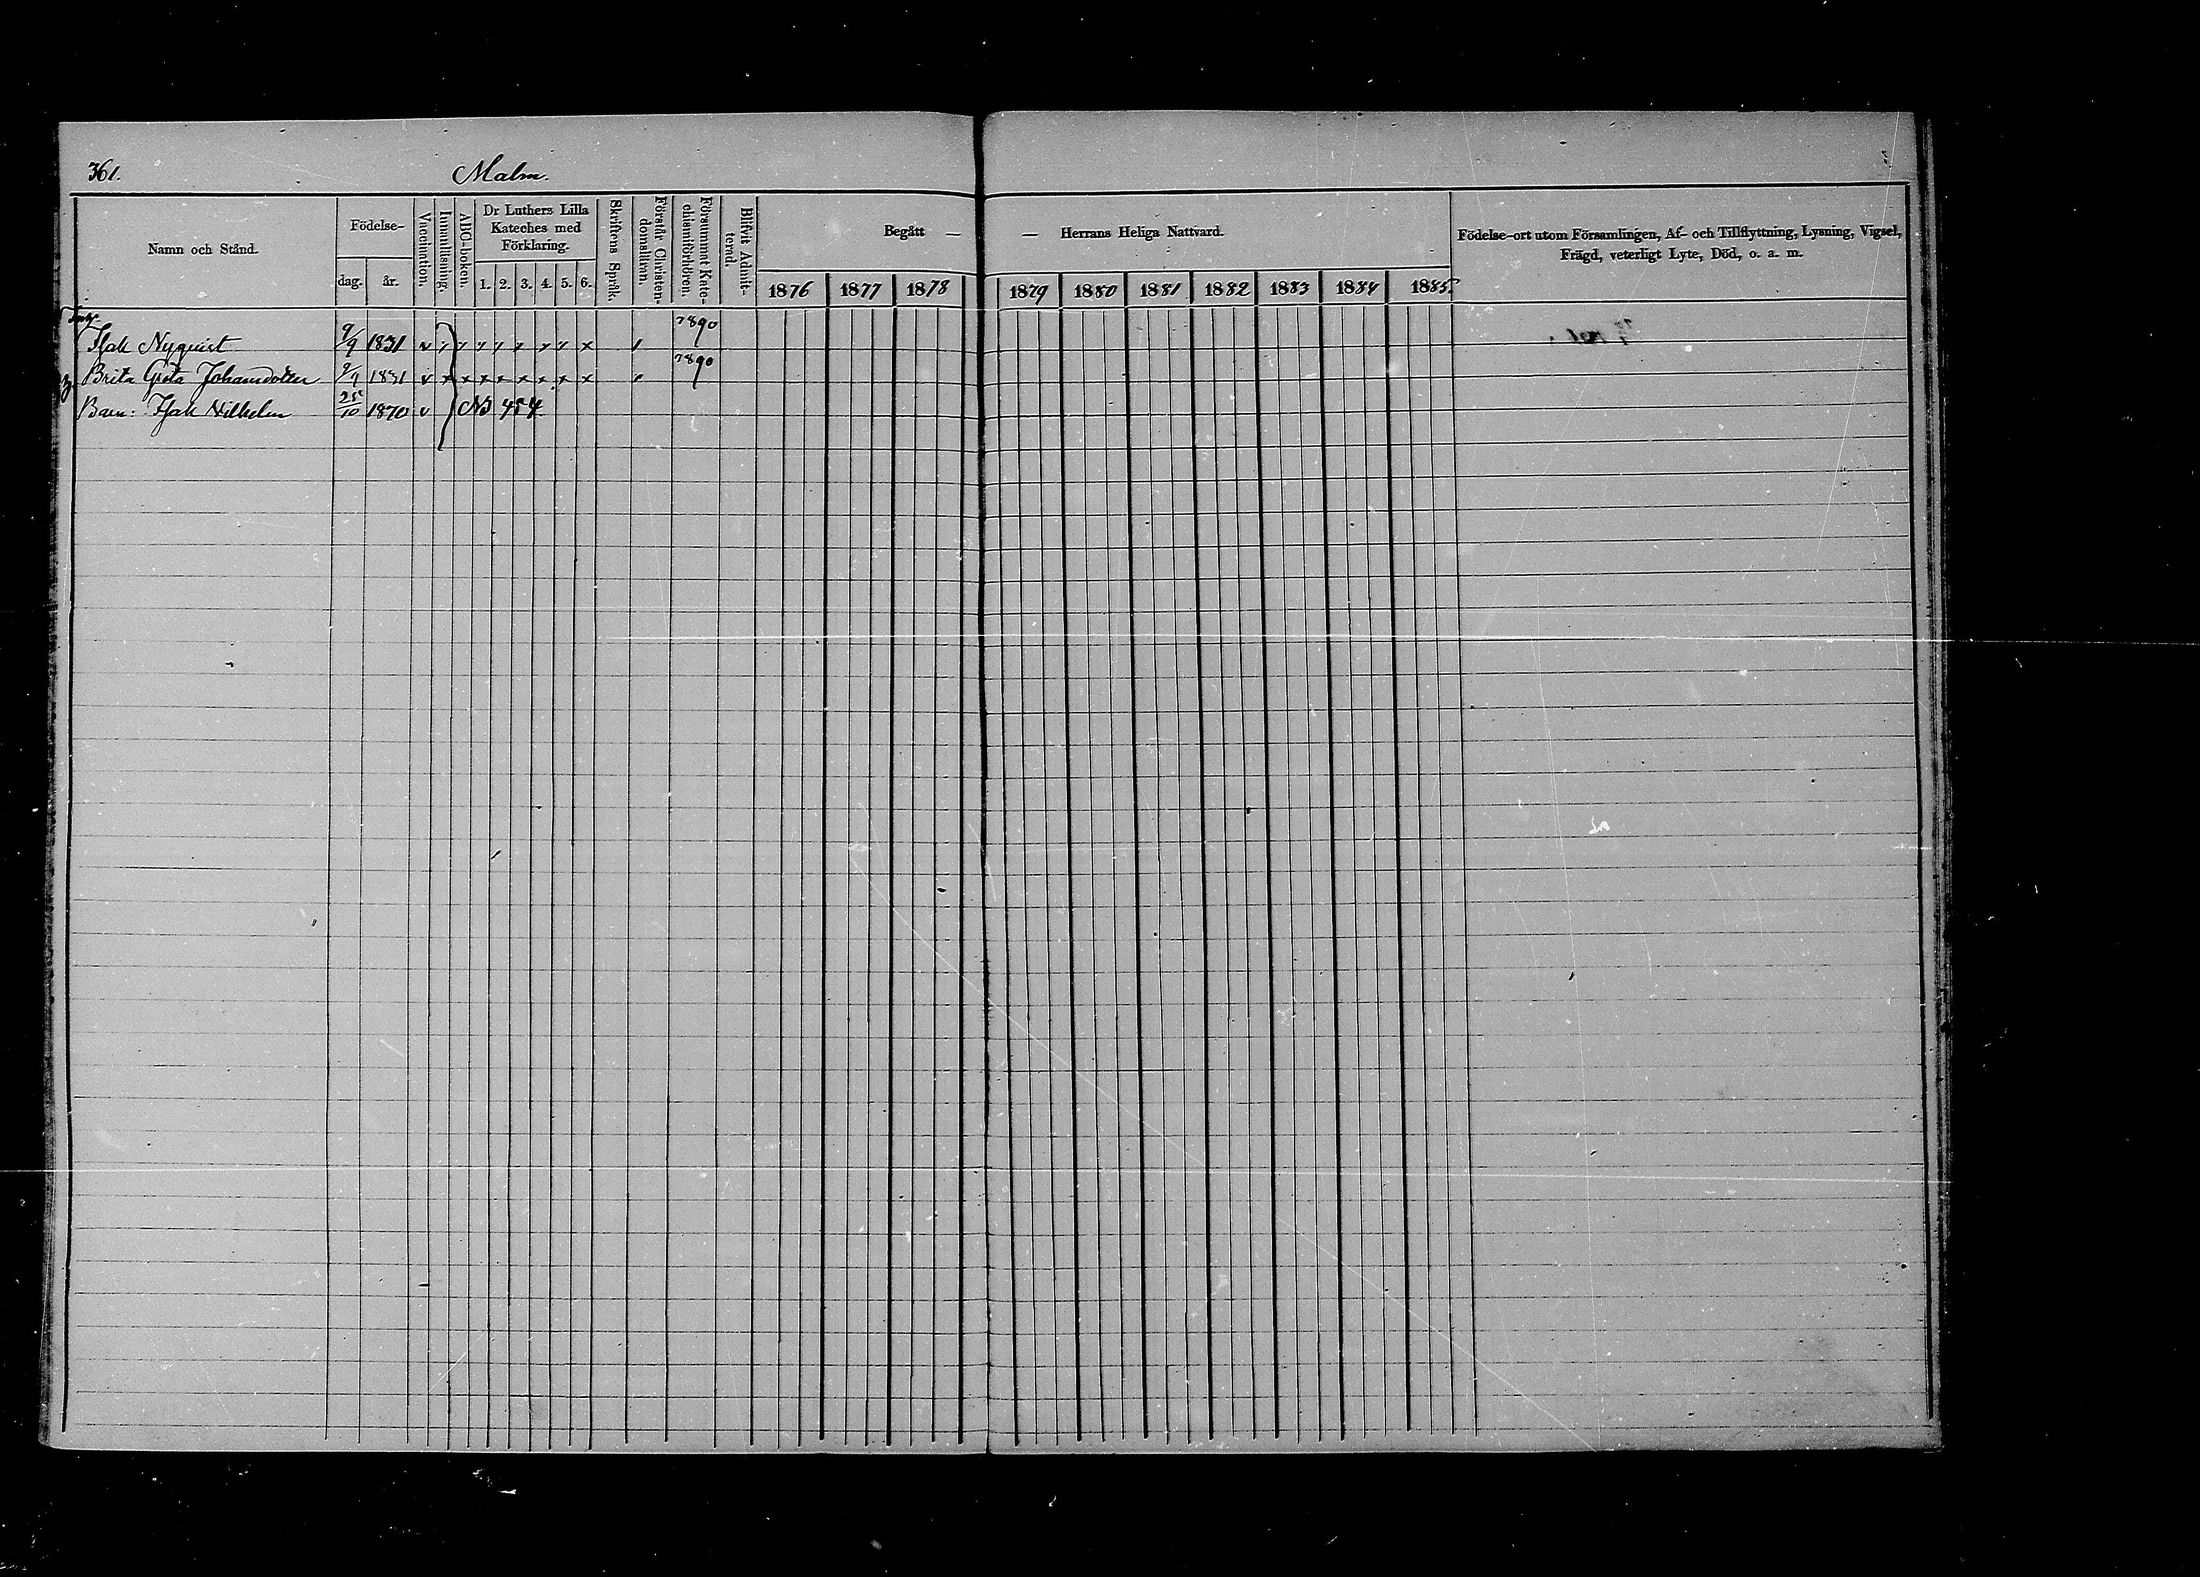 361. Malm.
Namn och Stånd. Födelse- dag. år. Vaccination. Innanläsning. ABC-boken. Dr Luthers Lilla Kateches med Förklaring. 1. 2. 3. 4. 5. 6. Skriftens Språk. Förstår Christendomsläran. Försummat Katechismiförhören. Blifvit Admitterad. Begått — — Herrans Heliga Nattvard. Födelse-ort utom Församlingen, Af- och Tillflyttning, Lysning, Vigsel, Frägd, veterligt Lyte, Död, o. a. m.
1876 1877 1878 1879 1880 1881 1882 1883 1884 1885.
Isak Nyquist 9/9 1831 v x x x x x x x x 7890
Brita Greta Johansdotter 1831 v x x x x x x x x 7890
Barn: Isak Wilhelm 25/10 1870 v N3 454